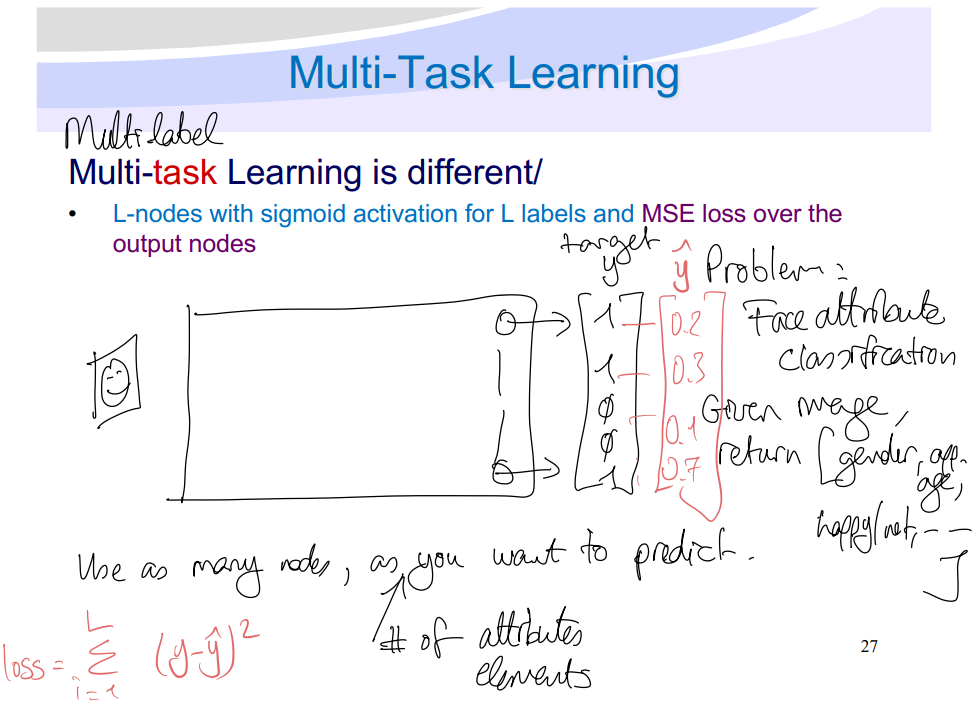 Multi-Task Learning
Multilabel
Multi-task Learning is different/
• L-nodes with sigmoid activation for L labels and MSE loss over the
output nodes
target
y ŷ
Problem:
Face attribute
classification
Given image,
return [gender, app.
age,
happy/not, --
]
1 0.2
1 0.3
0
0 0.1
1 0.7
Use as many nodes, as you want to predict.
# of attributes
elements
loss = L Σ i=1 (y-ŷ)²
27